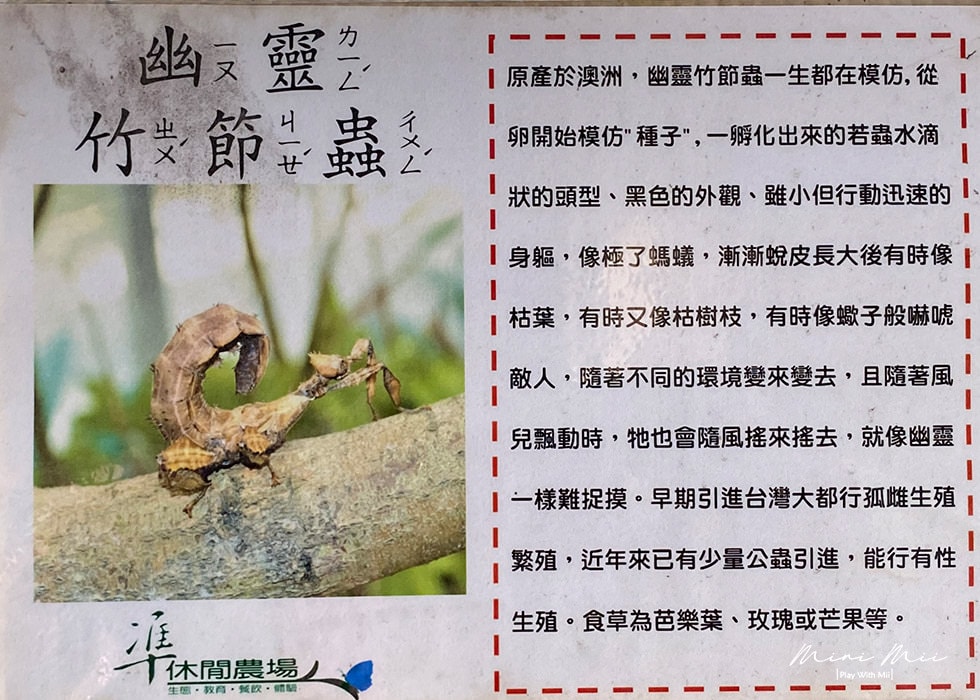 幽ㄧㄡ靈ㄌㄧㄥˊ
竹ㄓㄨˊ節ㄐㄧㄝˊ蟲ㄔㄨㄥˊ
原產於澳洲，幽靈竹節蟲一生都在模仿,從
卵開始模仿"種子",一孵化出來的若蟲水滴
狀的頭型、黑色的外觀、雖小但行動迅速的
身軀，像極了螞蟻，漸漸蛻皮長大後有時像
枯葉，有時又像枯樹枝，有時像蠍子般嚇唬
敵人，隨著不同的環境變來變去，且隨著風
兒飄動時，牠也會隨風搖來搖去，就像幽靈
一樣難捉摸。早期引進台灣大都行孤雌生殖
繁殖，近年來已有少量公蟲引進，能行有性
生殖。食草為芭樂葉、玫瑰或芒果等。
準休閒農場
生態・教育・餐飲・體驗
Mini Mii
[Play With Mii]